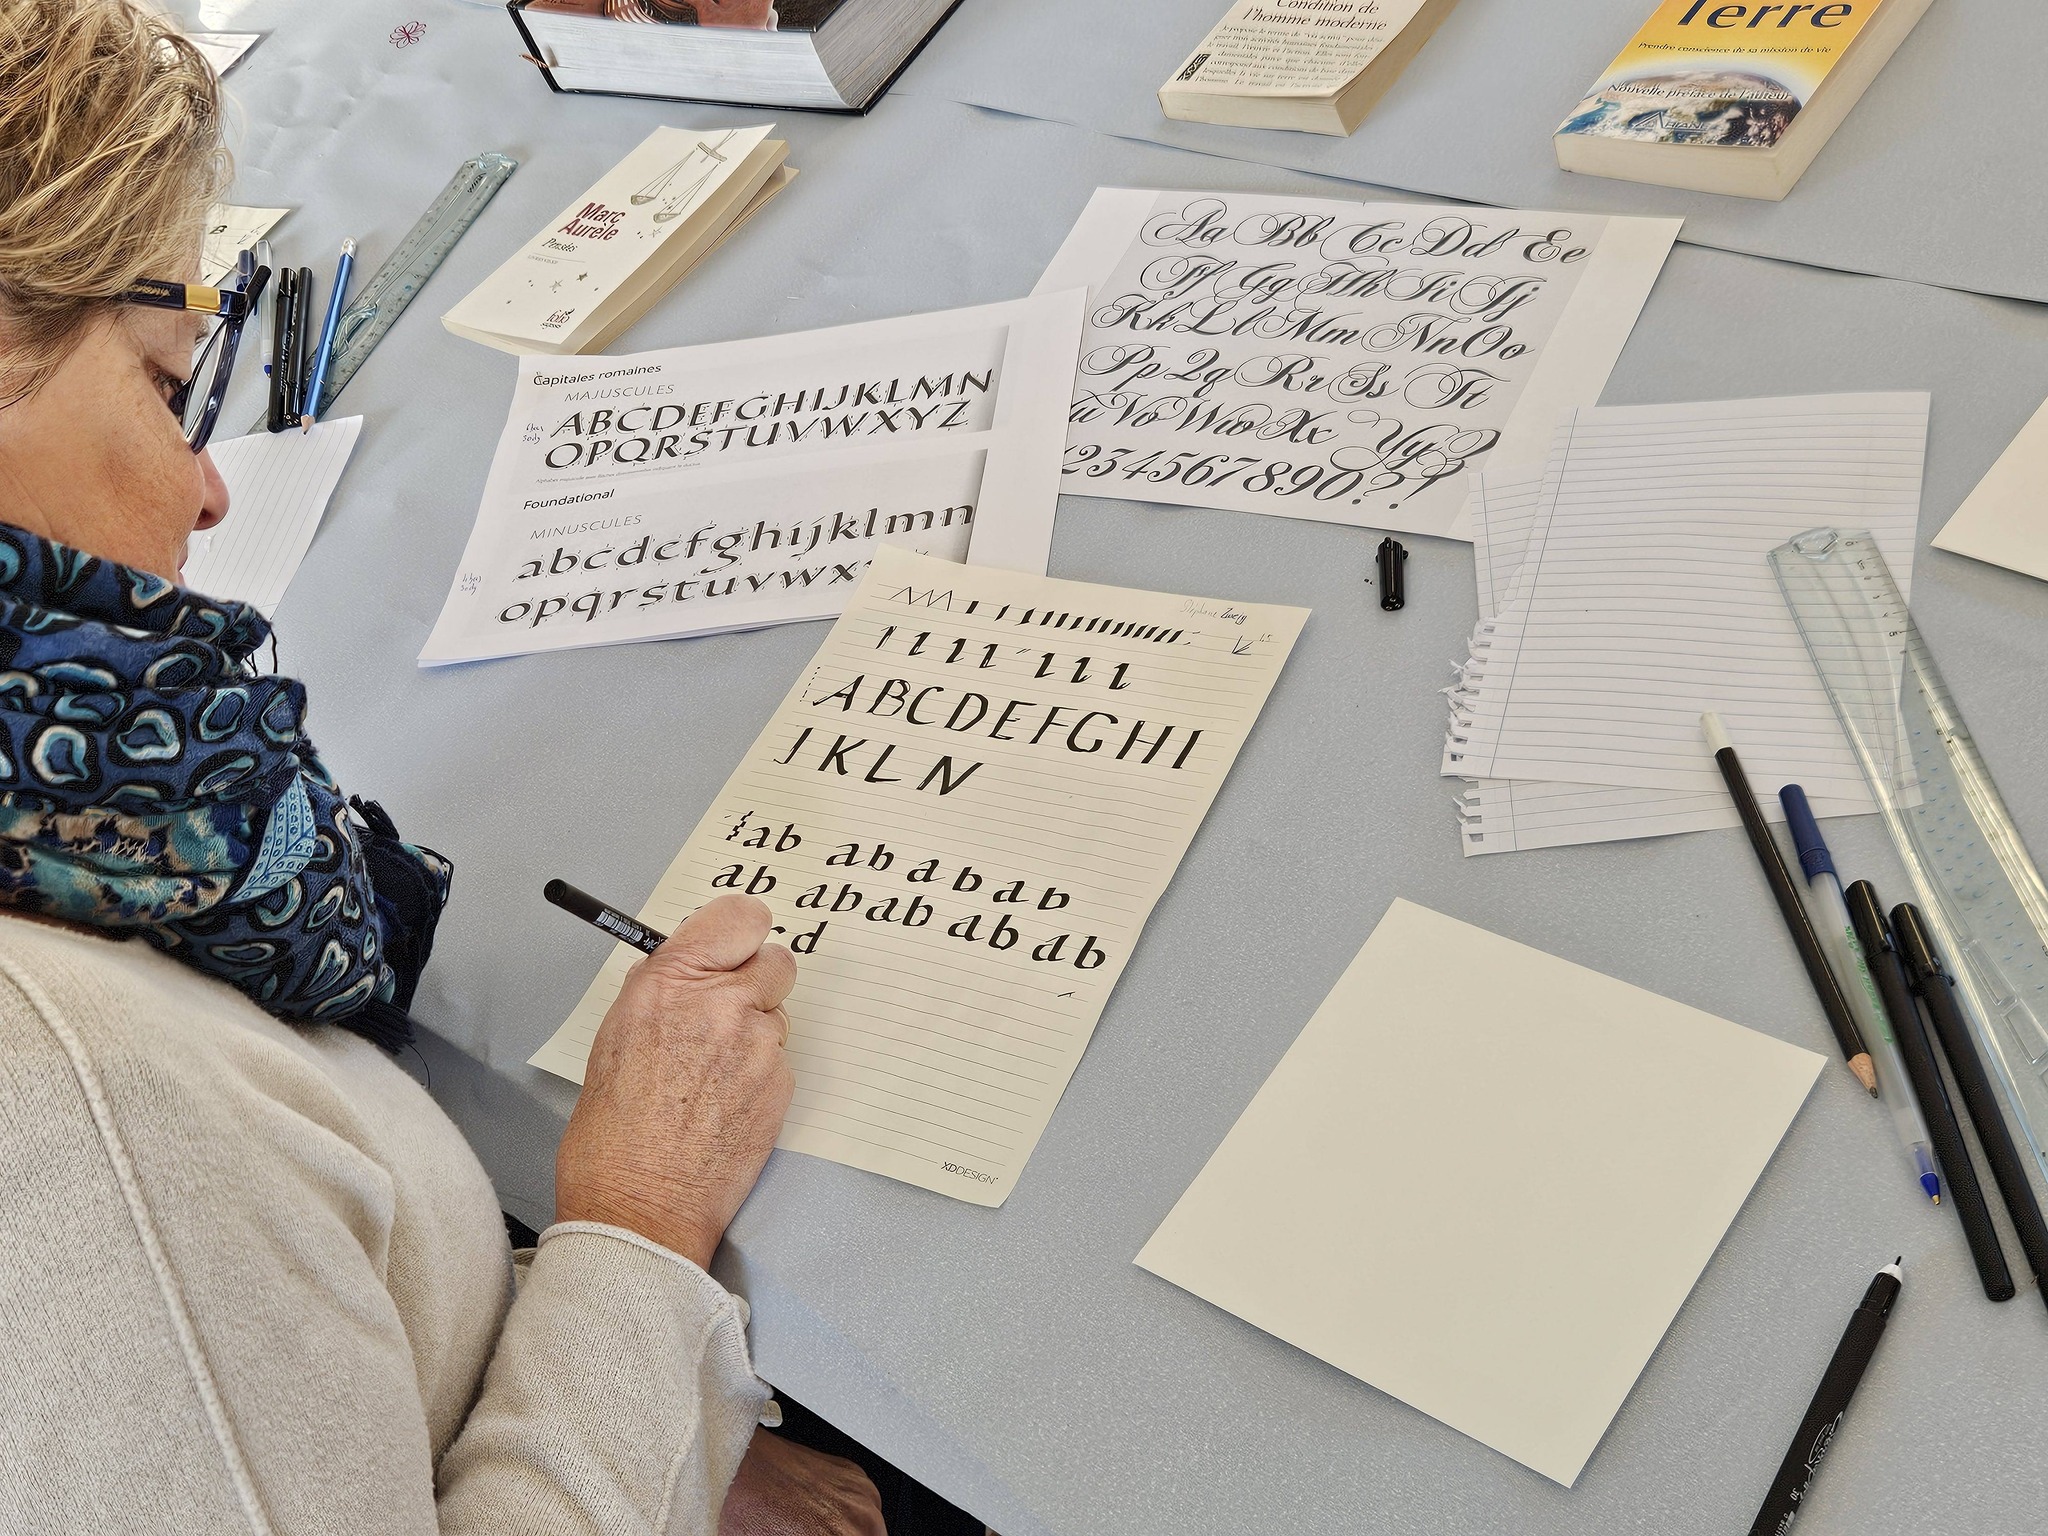 Condition de
l'homme moderne
Terre
Prendre conscience de sa mission de vie
Nouvelle préface de l'auteur
ARIANE
Marc
Aurèle
Pensées
folio
sagesse
Aa Bb Cc Dd Ee
Ff Gg Hh Ii Jj
Kk Ll Mm Nn Oo
Pp Qq Rr Ss Tt
Uu Vv Ww Xx Yy Zz
1234567890?!
Capitales romaines
MAJUSCULES
ABCDEFGHIJKLMN
OPQRSTUVWXYZ
Foundational
MINUSCULES
abcdefghijklmn
opqrstuvwx
Stéphane Zweig
ABCDEFGHI
JKLN
ab ab ab ab
ab ab ab ab ab
cd
XDDESIGN